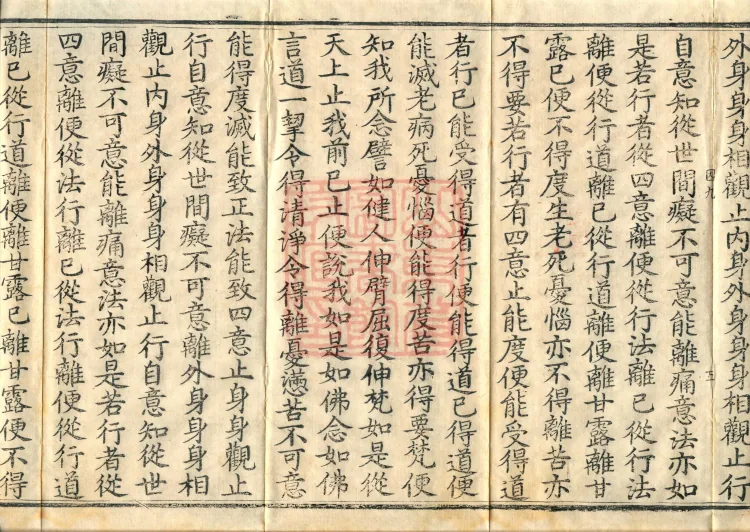 外身身身相觀止內身外身身身相觀止行
自意知從世間癡不可意能離痛意法亦如
是若行者從四意離便從行法離已從行法
離便從行道離已從行道離便離甘露離甘
露已便不得度生老死憂惱亦不得離苦亦
不得要若行者有四意止能度便能受得道
者行已能受得道者行便能得道已得道便
能滅老病死憂惱便能得度苦亦得要梵便
知我所念譬如健人伸臂屈復伸梵如是從
天上止我前已止便說我如是如佛念如佛
言道一挈令得清淨令得離憂懣苦不可意
能得度滅能致正法能致四意止身身觀止
行自意知從世間癡不可意離外身身身相
觀止內身外身身身相觀止行自意知從世
間癡不可意能離痛意法亦如是若行者從
四意離便從法行離已從法行離便從行道
離已從行道離便離甘露已離甘露便不得
四九